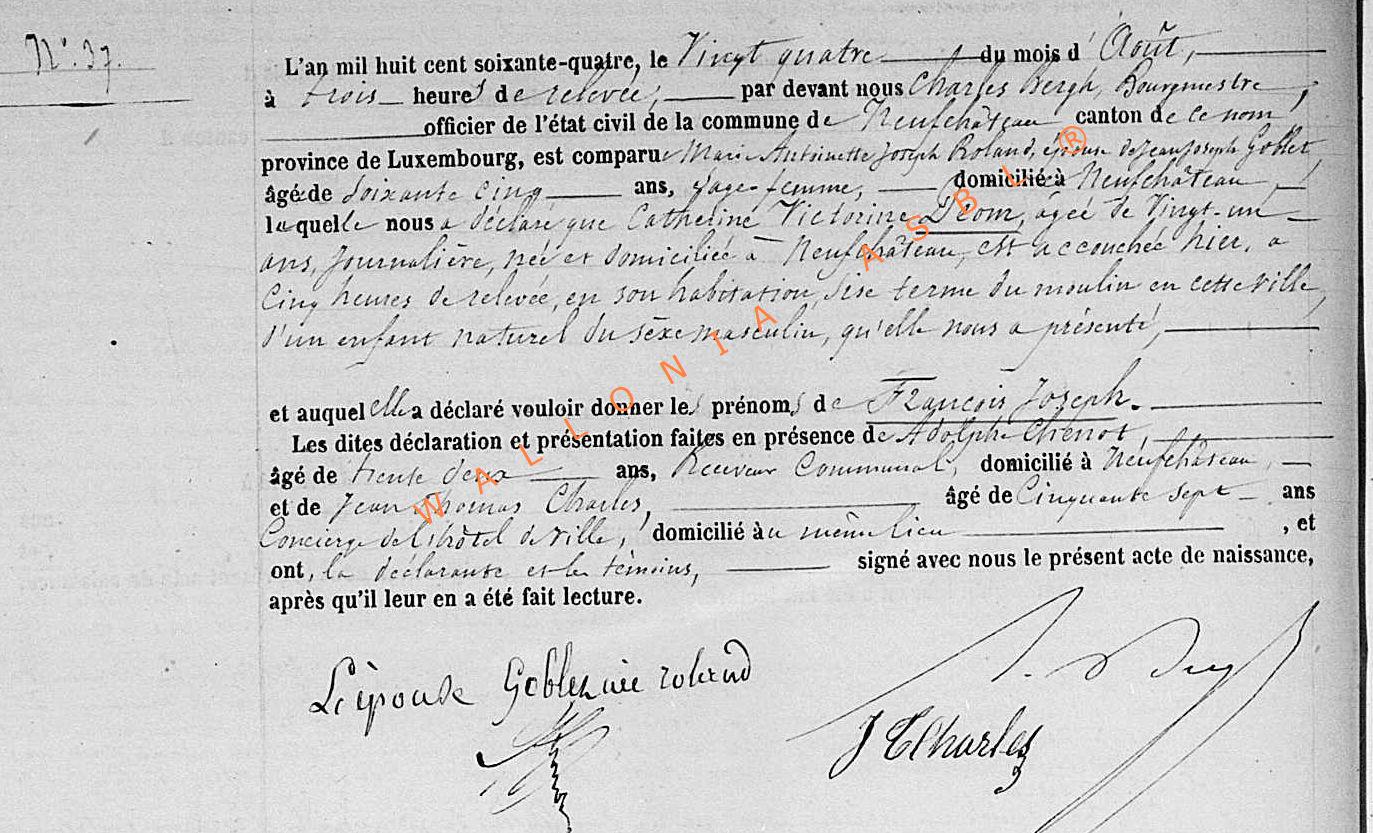 N° 37.
L'an mil huit cent soixante-quatre, le Vingt quatre du mois d'Août,
à trois heures de relevée, par devant nous Charles Bergh, Bourgmestre,
officier de l'état civil de la commune de Neufchâteau canton de ce nom
province de Luxembourg, est comparue Marie Antoinette Joseph Roland, épouse de Jean Joseph Goblet,
âgée de soixante cinq ans, sage-femme, domiciliée à Neufchâteau,
laquelle nous a déclaré que Catherine Victorine Déom, âgée de Vingt-un
ans, Journalière, née et domiciliée à Neufchâteau, est accouchée hier, à
Cinq heures de relevée, en son habitation, sise terme du moulin en cette ville,
d'un enfant naturel du sèxe masculin, qu'elle nous a présenté,
et auquel elle a déclaré vouloir donner les prénoms de François Joseph.
Les dites déclaration et présentation faites en présence de Adolphe Chenot,
âgé de trente deux ans, Receveur Communal, domicilié à Neufchâteau,
et de Jean Thomas Charles, âgé de Cinquante sept ans
Concierge de l'hôtel de ville, domicilié au même lieu, et
ont, la déclarante et les témoins, signé avec nous le présent acte de naissance,
après qu'il leur en a été fait lecture.
L'épouse Goblet née roland
J T Charles
WALLONIA ASBL ®